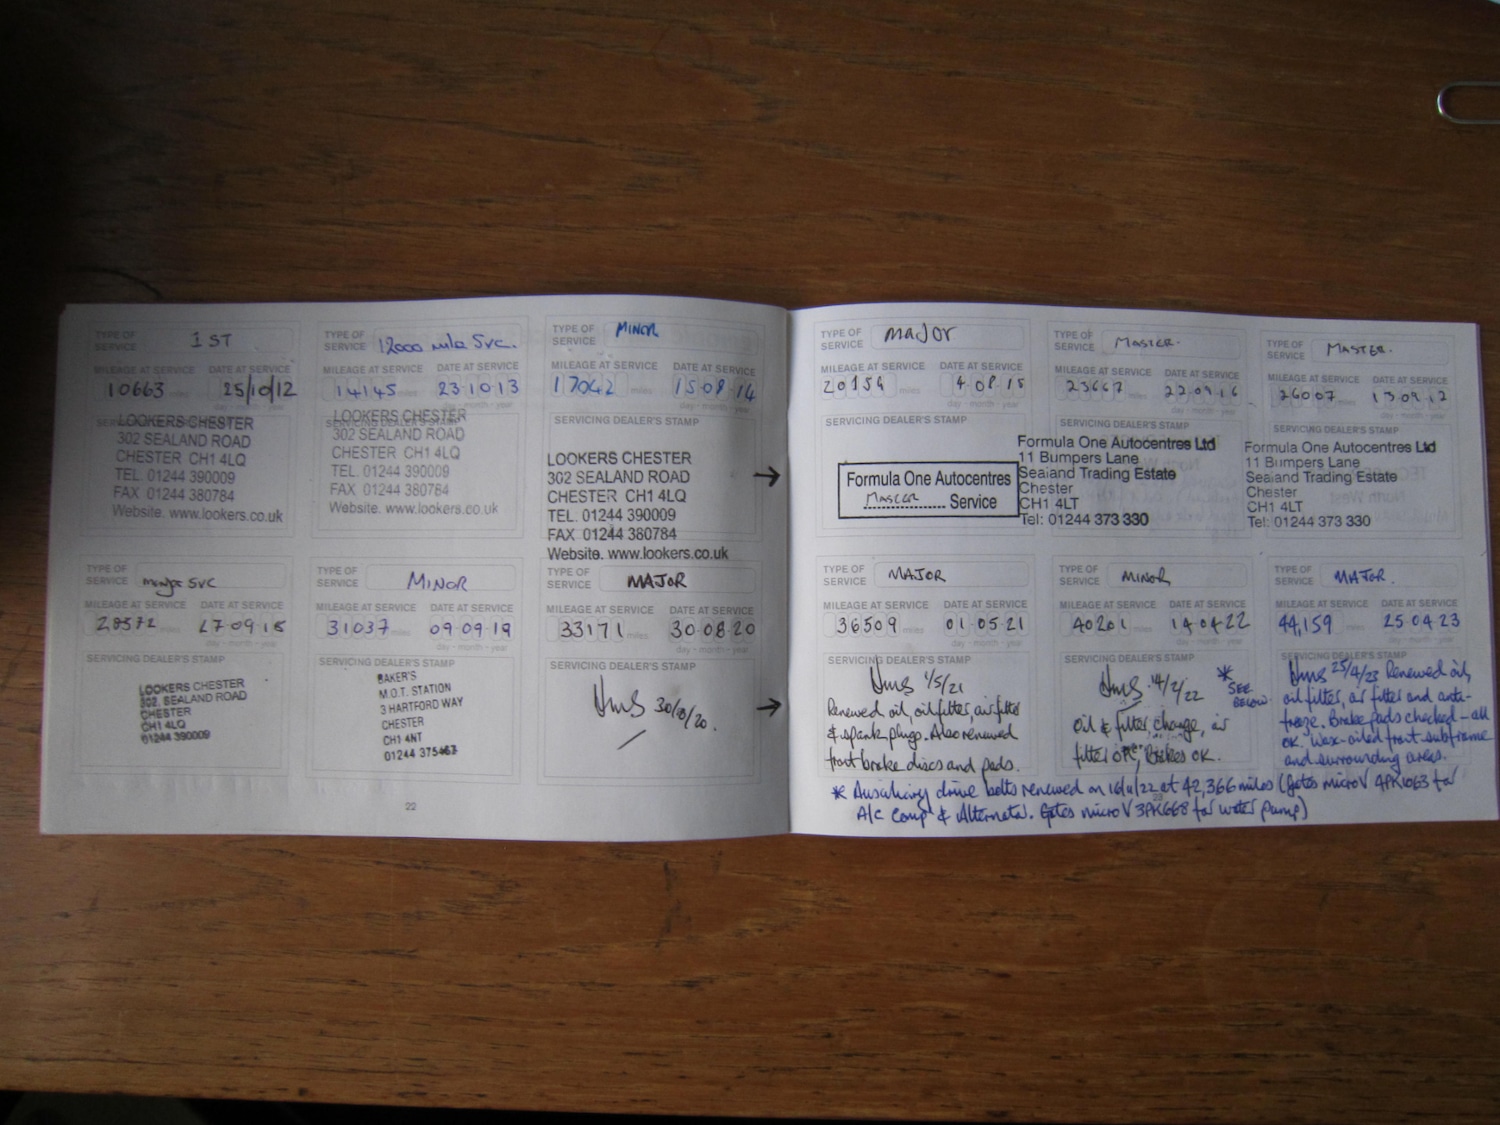 TYPE OF SERVICE 1ST
MILEAGE AT SERVICE DATE AT SERVICE
10663 25/10/12
LOOKERS CHESTER
302 SEALAND ROAD
CHESTER CH1 4LQ
TEL. 01244 390009
FAX 01244 380784
Website. www.lookers.co.uk
TYPE OF SERVICE 12000 mile Svc.
MILEAGE AT SERVICE DATE AT SERVICE
14145 miles 23·10·13
day - month - year
SERVICING DEALER'S STAMP
LOOKERS CHESTER
302 SEALAND ROAD
CHESTER CH1 4LQ
TEL. 01244 390009
FAX 01244 380784
Website. www.lookers.co.uk
TYPE OF SERVICE MINOR
MILEAGE AT SERVICE DATE AT SERVICE
17042 miles 15·08·14
day - month - year
SERVICING DEALER'S STAMP
LOOKERS CHESTER
302 SEALAND ROAD
CHESTER CH1 4LQ
TEL. 01244 390009
FAX 01244 380784
Website. www.lookers.co.uk
TYPE OF SERVICE major
MILEAGE AT SERVICE DATE AT SERVICE
20154 miles 4·08·15
day - month - year
SERVICING DEALER'S STAMP
Formula One Autocentres
MASTER Service
TYPE OF SERVICE MASTER.
MILEAGE AT SERVICE DATE AT SERVICE
23667 miles 22·09·16
day - month - year
SERVICING DEALER'S STAMP
Formula One Autocentres Ltd
11 Bumpers Lane
Sealand Trading Estate
Chester
CH1 4LT
Tel: 01244 373 330
TYPE OF SERVICE MASTER.
MILEAGE AT SERVICE DATE AT SERVICE
26007 miles 13·09·17
day - month - year
SERVICING DEALER'S STAMP
Formula One Autocentres Ltd
11 Bumpers Lane
Sealand Trading Estate
Chester
CH1 4LT
Tel: 01244 373 330
TYPE OF SERVICE Svc
MILEAGE AT SERVICE DATE AT SERVICE
28572 miles 27·09·18
day - month - year
SERVICING DEALER'S STAMP
LOOKERS CHESTER
302, SEALAND ROAD
CHESTER
CH1 4LQ
01244 390009
TYPE OF SERVICE MINOR
MILEAGE AT SERVICE DATE AT SERVICE
31037 miles 09·09·19
day - month - year
SERVICING DEALER'S STAMP
BAKER'S
M.O.T. STATION
3 HARTFORD WAY
CHESTER
CH1 4NT
01244 375467
TYPE OF SERVICE MAJOR
MILEAGE AT SERVICE DATE AT SERVICE
33171 miles 30·08·20
day - month - year
SERVICING DEALER'S STAMP
TYPE OF SERVICE MAJOR
MILEAGE AT SERVICE DATE AT SERVICE
36509 miles 01·05·21
day - month - year
SERVICING DEALER'S STAMP
1/5/21
Renewed oil, oil filter, air filter
& spark plugs. Also renewed
front brake discs and pads.
TYPE OF SERVICE MINOR
MILEAGE AT SERVICE DATE AT SERVICE
40201 miles 14·04·22
day - month - year
SERVICING DEALER'S STAMP
* SEE
BELOW.
oil & filter change, air
filter OK, Brakes OK.
TYPE OF SERVICE MAJOR.
MILEAGE AT SERVICE DATE AT SERVICE
44,159 miles 25·04·23
day - month - year
SERVICING DEALER'S STAMP
25/4/23 Renewed oil,
oil filter, air filter and anti-
freeze. Brake pads checked - all
OK. Wax-oiled front subframe
and surrounding areas.
* Auxiliary drive belts renewed on 16/11/22 at 42,366 miles (Gates micro V 4PK1063 for
A/C Comp & Alternator. Gates micro V 3PK668 for water pump)
22